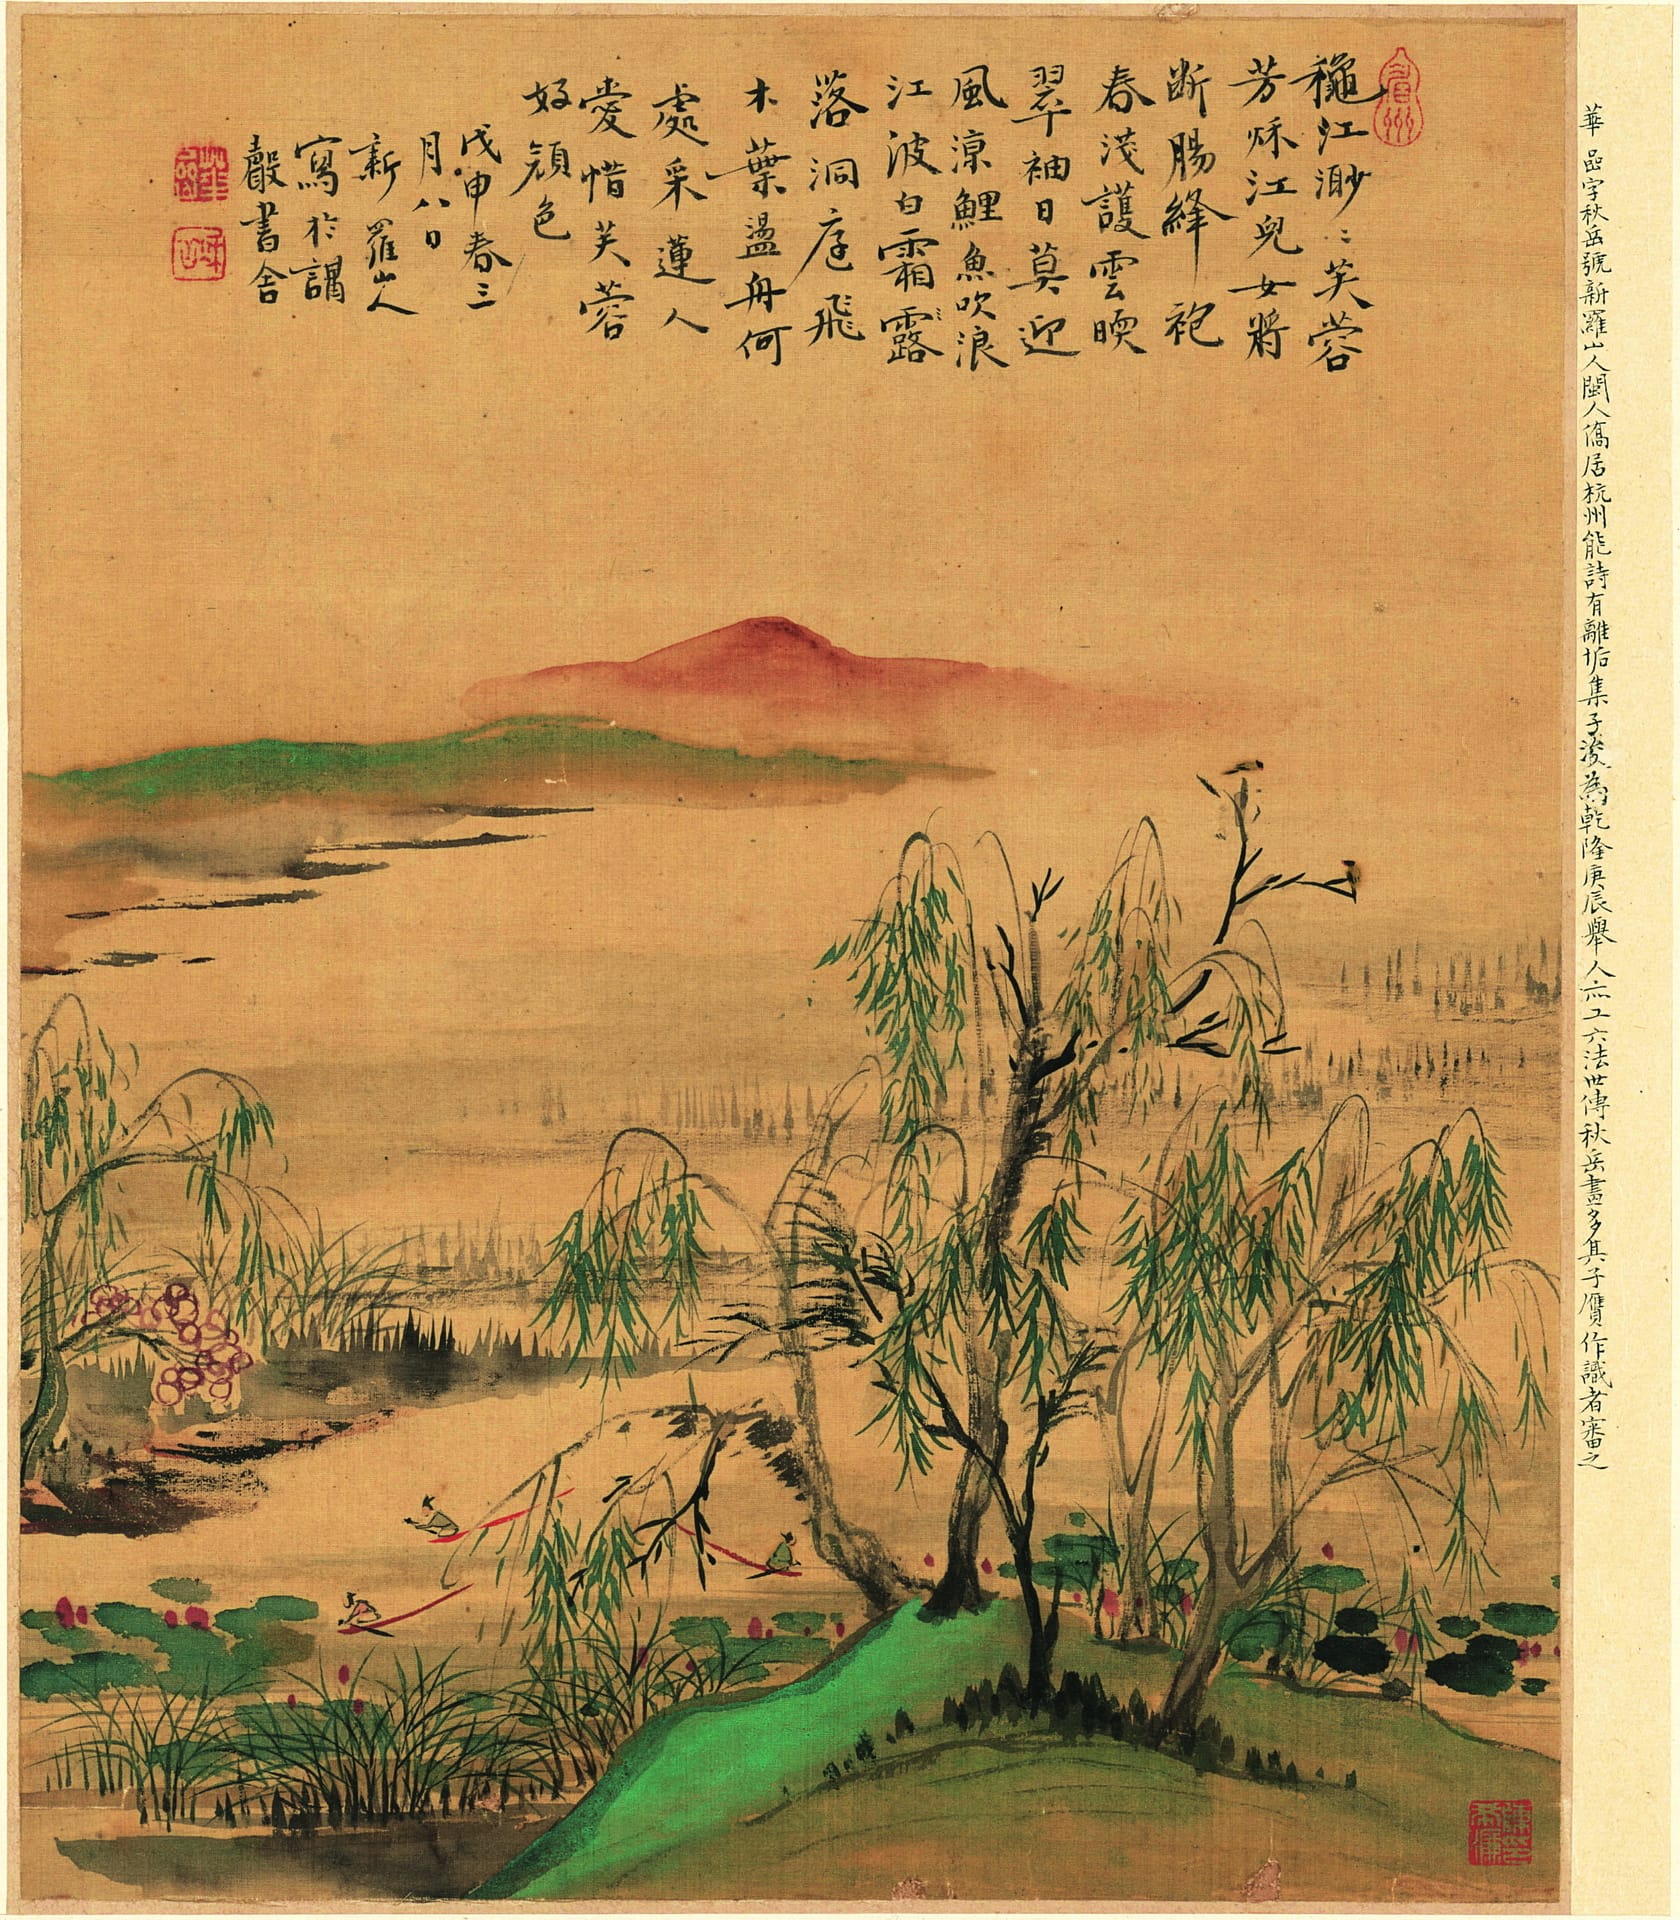 華嵒字秋岳號新羅山人閩人僑居杭州能詩有離垢集子浚為乾隆庚辰舉人亦工六法世傳秋岳畫多其子贗作識者審之
穐江渺〻芙蓉
芳秌江兒女將
断腸絳袍
春浅護雲㬉
翠袖日莫迎
風涼鯉魚吹浪
江波白霜露
落洞庭飛
木葉盪舟何
處采蓮人
愛惜芙蓉
好顔色
戊申春三
月八日
新羅山人
寫於講
聲書舍